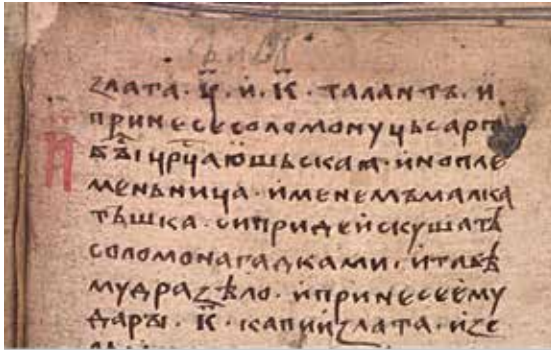 злата · ч҃ · и · к҃ · талантъ · и
принесе соломону
бъі цр҃ца юшьскаꙗ · инопле
меньница · именемъ малка
тъшка · си приде искушатъ
соломона гадками · и та бѣ
мудра зѣло · и принесе ему
дары · к҃ · капии злата · и зе